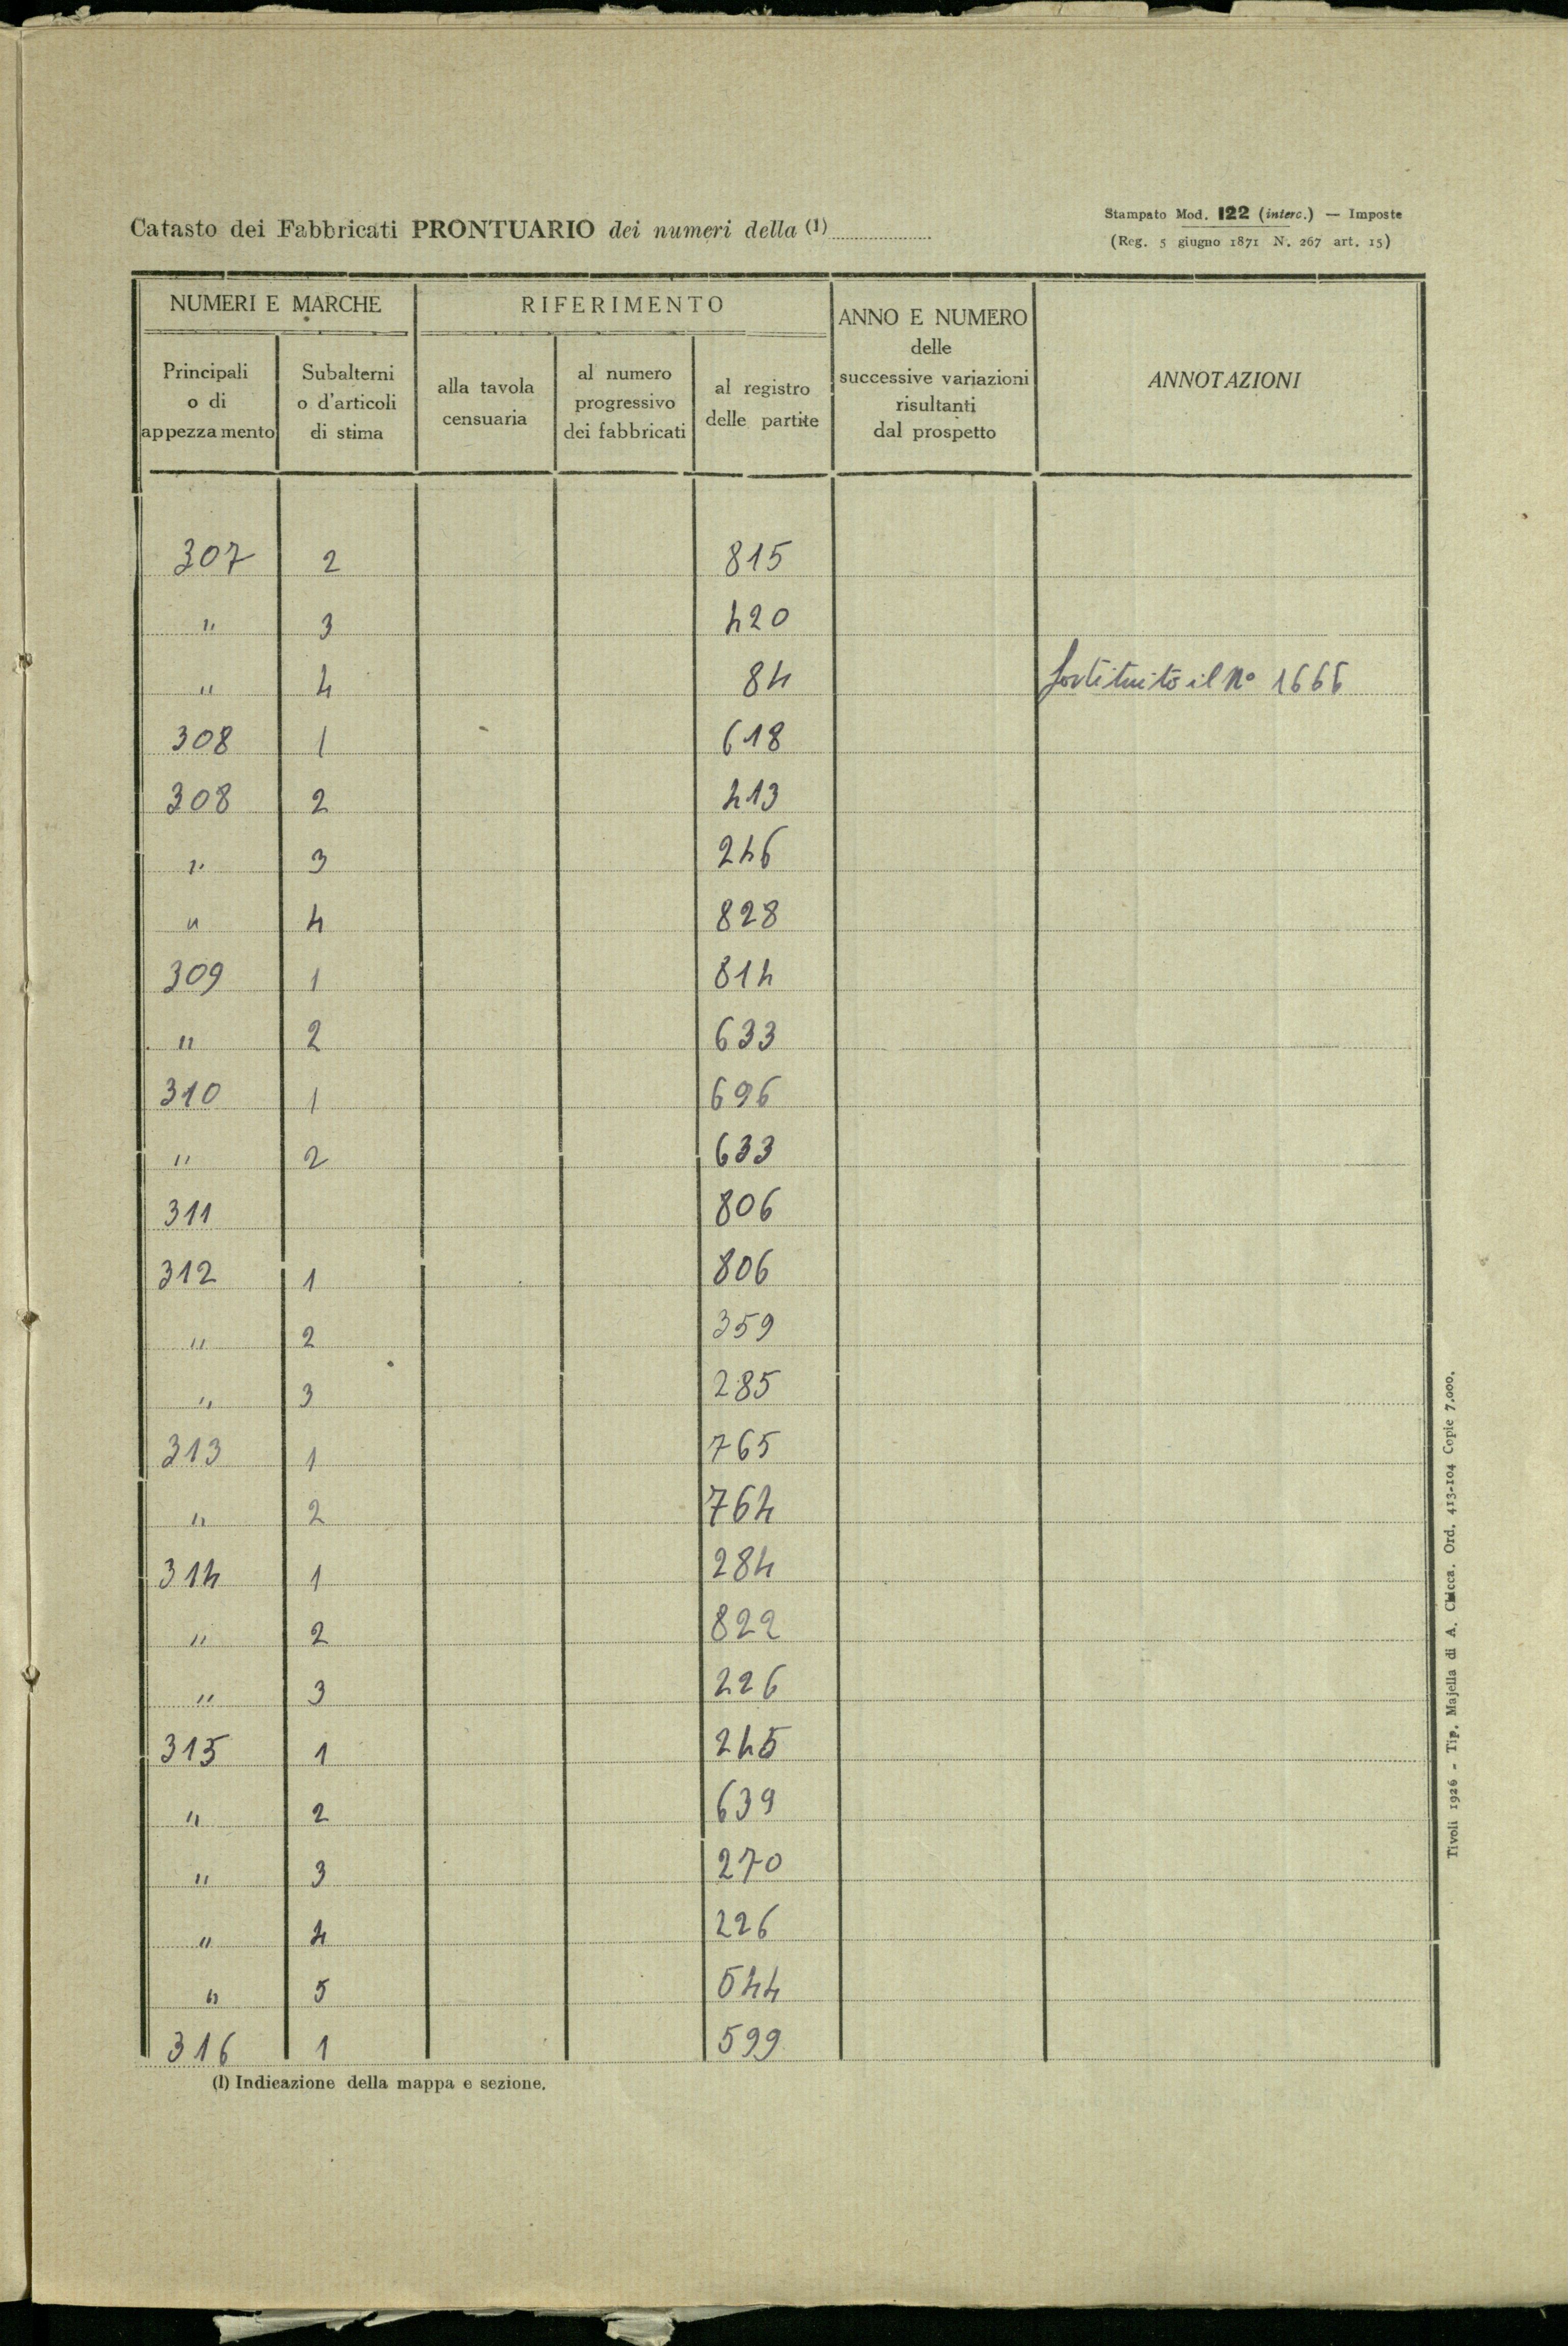 Catasto dei Fabbricati PRONTUARIO dei numeri della (1)
Stampato Mod. 122 (interc.) — Imposte
(Reg. 5 giugno 1871 N. 267 art. 15)
NUMERI E MARCHE
RIFERIMENTO
ANNO E NUMERO
delle
successive variazioni
risultanti
dal prospetto
ANNOTAZIONI
Principali
o di
appezzamento
Subalterni
o d'articoli
di stima
alla tavola
censuaria
al numero
progressivo
dei fabbricati
al registro
delle partite
307 2 815
" 3 420
" 4 84 Sostituito il No 1666
308 1 618
308 2 413
" 3 246
" 4 828
309 1 814
" 2 633
310 1 696
" 2 633
311 806
312 1 806
" 2 359
" 3 285
313 1 765
" 2 764
314 1 284
" 2 822
" 3 226
315 1 245
" 2 639
" 3 270
" 4 226
" 5 544
316 1 599
(1) Indicazione della mappa e sezione.
Tivoli 1926 - Tip. Majella di A. Chicca. Ord. 413-104 Copie 7.000.